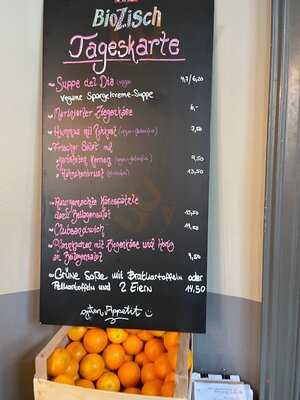 BioZisch
Tageskarte
Suppe del Dia (vegan) 4,7/6,20
Vegane Spargelcreme-Suppe
Marinierter Ziegenkäse 6,-
Hummus mit
Frischer Salat mit
gerösteten Kernen (vegan+glutenfrei) 9,50
Hähnchenbrust 13,50
Hausgemachte Käsespätzle
dazu Beilagensalat
Clubsandwich
mit Ziegenkäse und Honig
an Beilagensalat
Grüne Soße mit Bratkartoffeln oder
Pellkartoffeln und 2 Eiern 14,50
guten Appetit